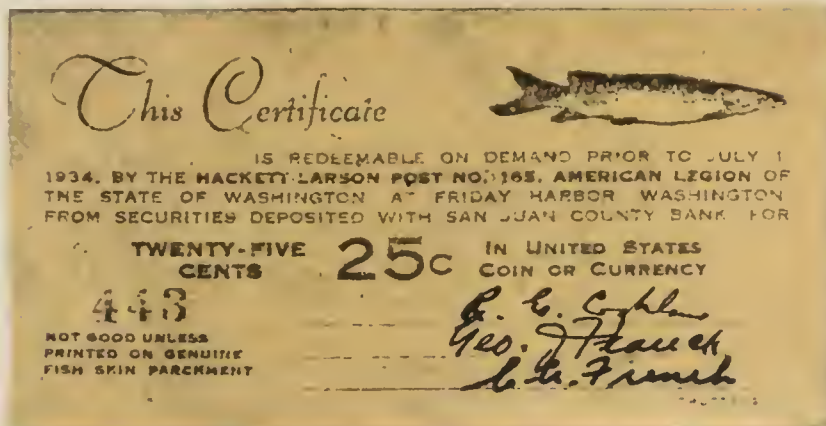 This Certificate
IS REDEEMABLE ON DEMAND PRIOR TO JULY 1
1934, BY THE HACKETT-LARSON POST NO. 163, AMERICAN LEGION OF
THE STATE OF WASHINGTON AT FRIDAY HARBOR WASHINGTON
FROM SECURITIES DEPOSITED WITH SAN JUAN COUNTY BANK FOR
TWENTY-FIVE CENTS 25c IN UNITED STATES COIN OR CURRENCY
443
NOT GOOD UNLESS
PRINTED ON GENUINE
FISH SKIN PARCHMENT
Geo. J Franck
French